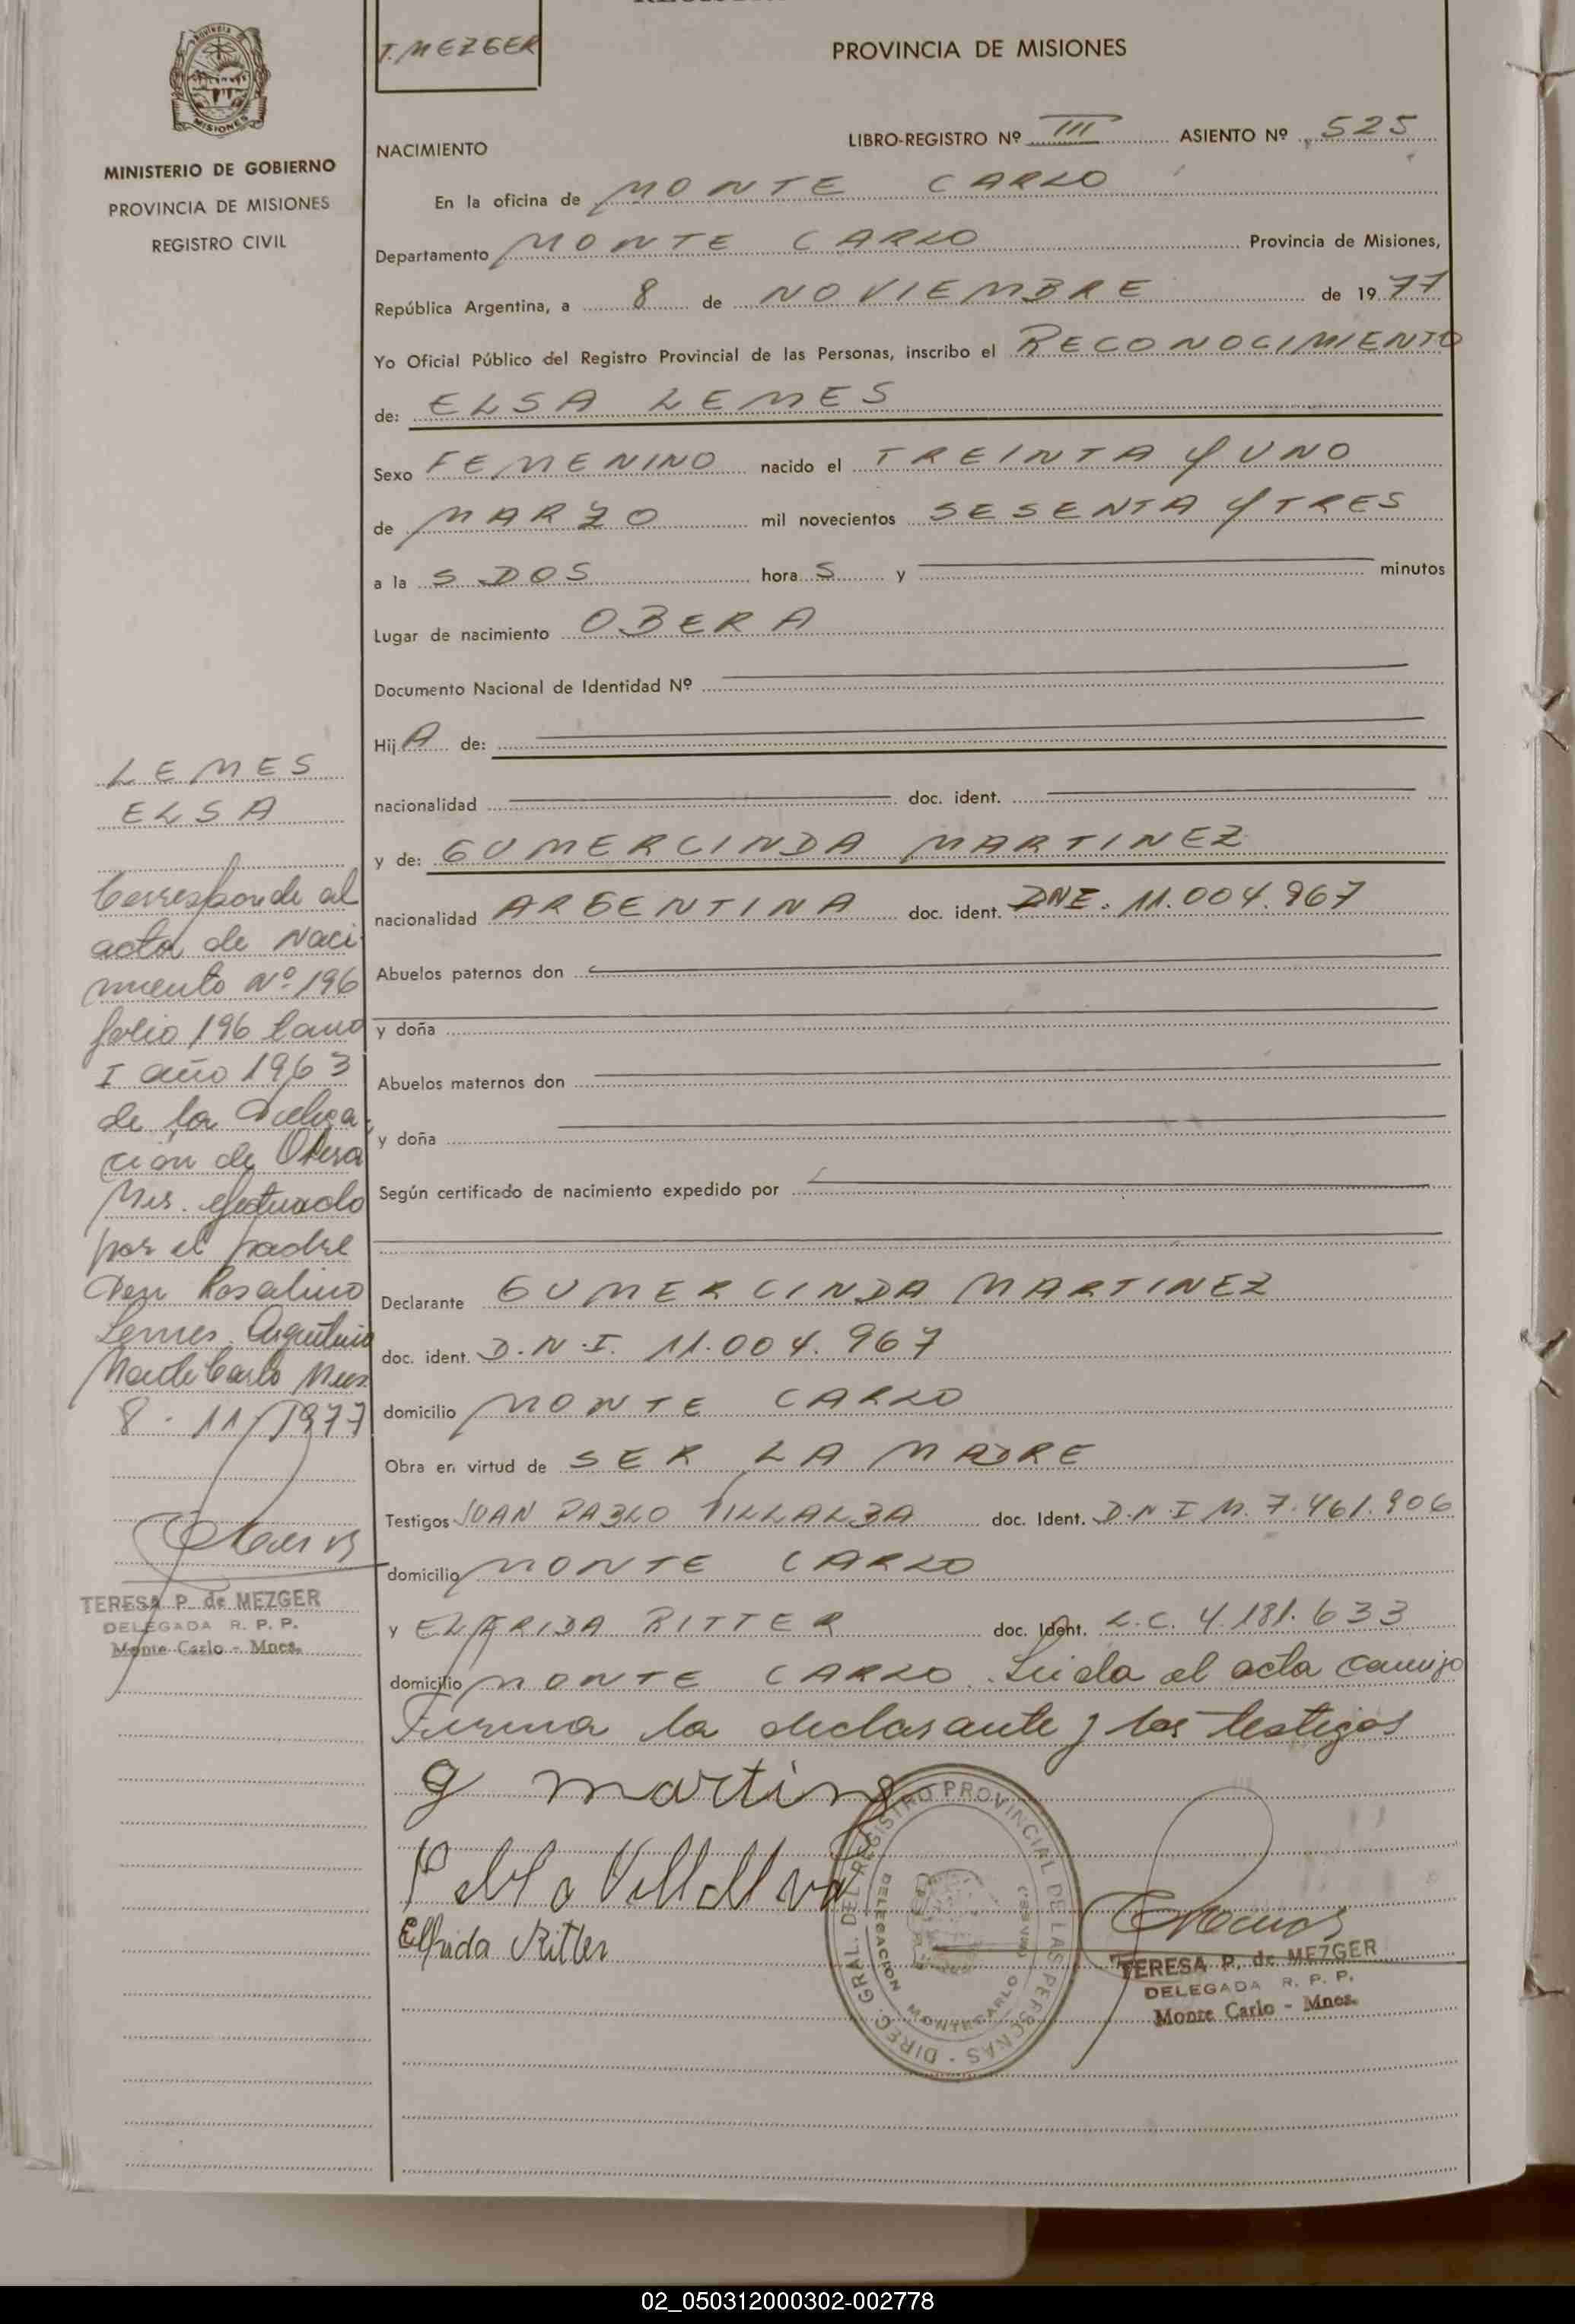 T. MEZGER
PROVINCIA DE MISIONES
MISIONES
MINISTERIO DE GOBIERNO
PROVINCIA DE MISIONES
REGISTRO CIVIL
NACIMIENTO
LIBRO-REGISTRO Nº III ASIENTO Nº 525
En la oficina de MONTE CARLO
Departamento MONTE CARLO Provincia de Misiones,
República Argentina, a 8 de NOVIEMBRE de 1977
Yo Oficial Público del Registro Provincial de las Personas, inscribo el RECONOCIMIENTO
de: ELSA LEMES
Sexo FEMENINO nacido el TREINTA Y UNO
de MARZO mil novecientos SESENTA Y TRES
a la S DOS hora S y minutos
Lugar de nacimiento OBERA
Documento Nacional de Identidad Nº
Hij A de:
nacionalidad doc. ident.
y de: GUMERCINDA MARTINEZ
nacionalidad ARGENTINA doc. ident. DNI. 11.004.967
Abuelos paternos don
y doña
Abuelos maternos don
y doña
Según certificado de nacimiento expedido por
Declarante GUMERCINDA MARTINEZ
doc. ident. D.N.I. 11.004.967
domicilio MONTE CARLO
Obra en virtud de SER LA MADRE
Testigos JUAN PABLO VILLALBA doc. Ident. D.N.I M. 7.461.906
domicilio MONTE CARLO
y ELFRIDA RITTER doc. Ident. L.C. 4.181.633
domicilio MONTE CARLO. Leida el acta
Firma la declarante y los testigos
LEMES
ELSA
Corresponde al
acta de Naci
miento Nº 196
folio 196 tomo
I año 1963
de la Delega
ción de Obera
Mis. efectuado
por el padre
Don Rosalino
Lemes. Argentino
Monte Carlo Mnes.
8-11/1977
TERESA P. de MEZGER
DELEGADA R. P. P.
Monte Carlo - Mnes.
g martinez
Pablo Villalva
Elfrida Ritter
DIREC. GRAL. DEL REGISTRO PROVINCIAL DE LAS PERSONAS
DELEGACION MONTE CARLO
TERESA P. de MEZGER
DELEGADA R. P. P.
Monte Carlo - Mnes.
02_050312000302-002778